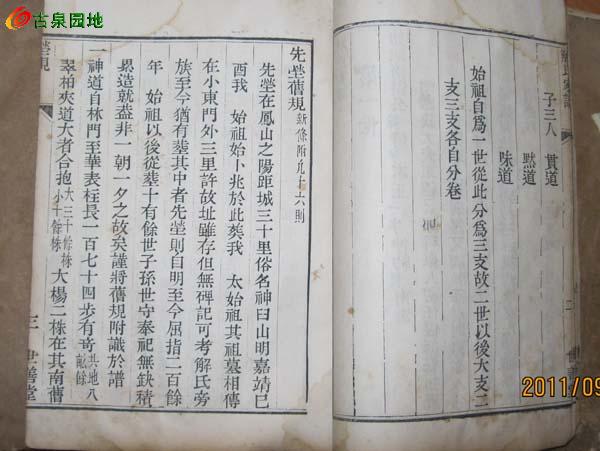 古泉园地
子三人 貫道
黙道
味道
始祖自爲一世從此分爲三支故二世以後大支二
支三支各自分卷
二
先塋舊規新條附凡十六則
先塋在鳳山之陽距城三十里俗名神臼山明嘉靖巳
酉我 始祖始卜兆於此葵我 太始祖其祖墓相傳
在小東門外三里許故址雖存但無碑記可考解氏旁
族至今猶有塟其中者先塋則自明至今屈指二百餘
年 始祖以後從塟十有餘世子孫世守奉祀無缺積
累造就葢非一朝一夕之故矣謹將舊規附識於譜
一神道自林門至華表柱長一百七十四步有竒共地八畝餘
翠柏夾道大者合抱大三十餘株小十餘株大楊二株在其南舊
塋規
三
世善堂
2011/09